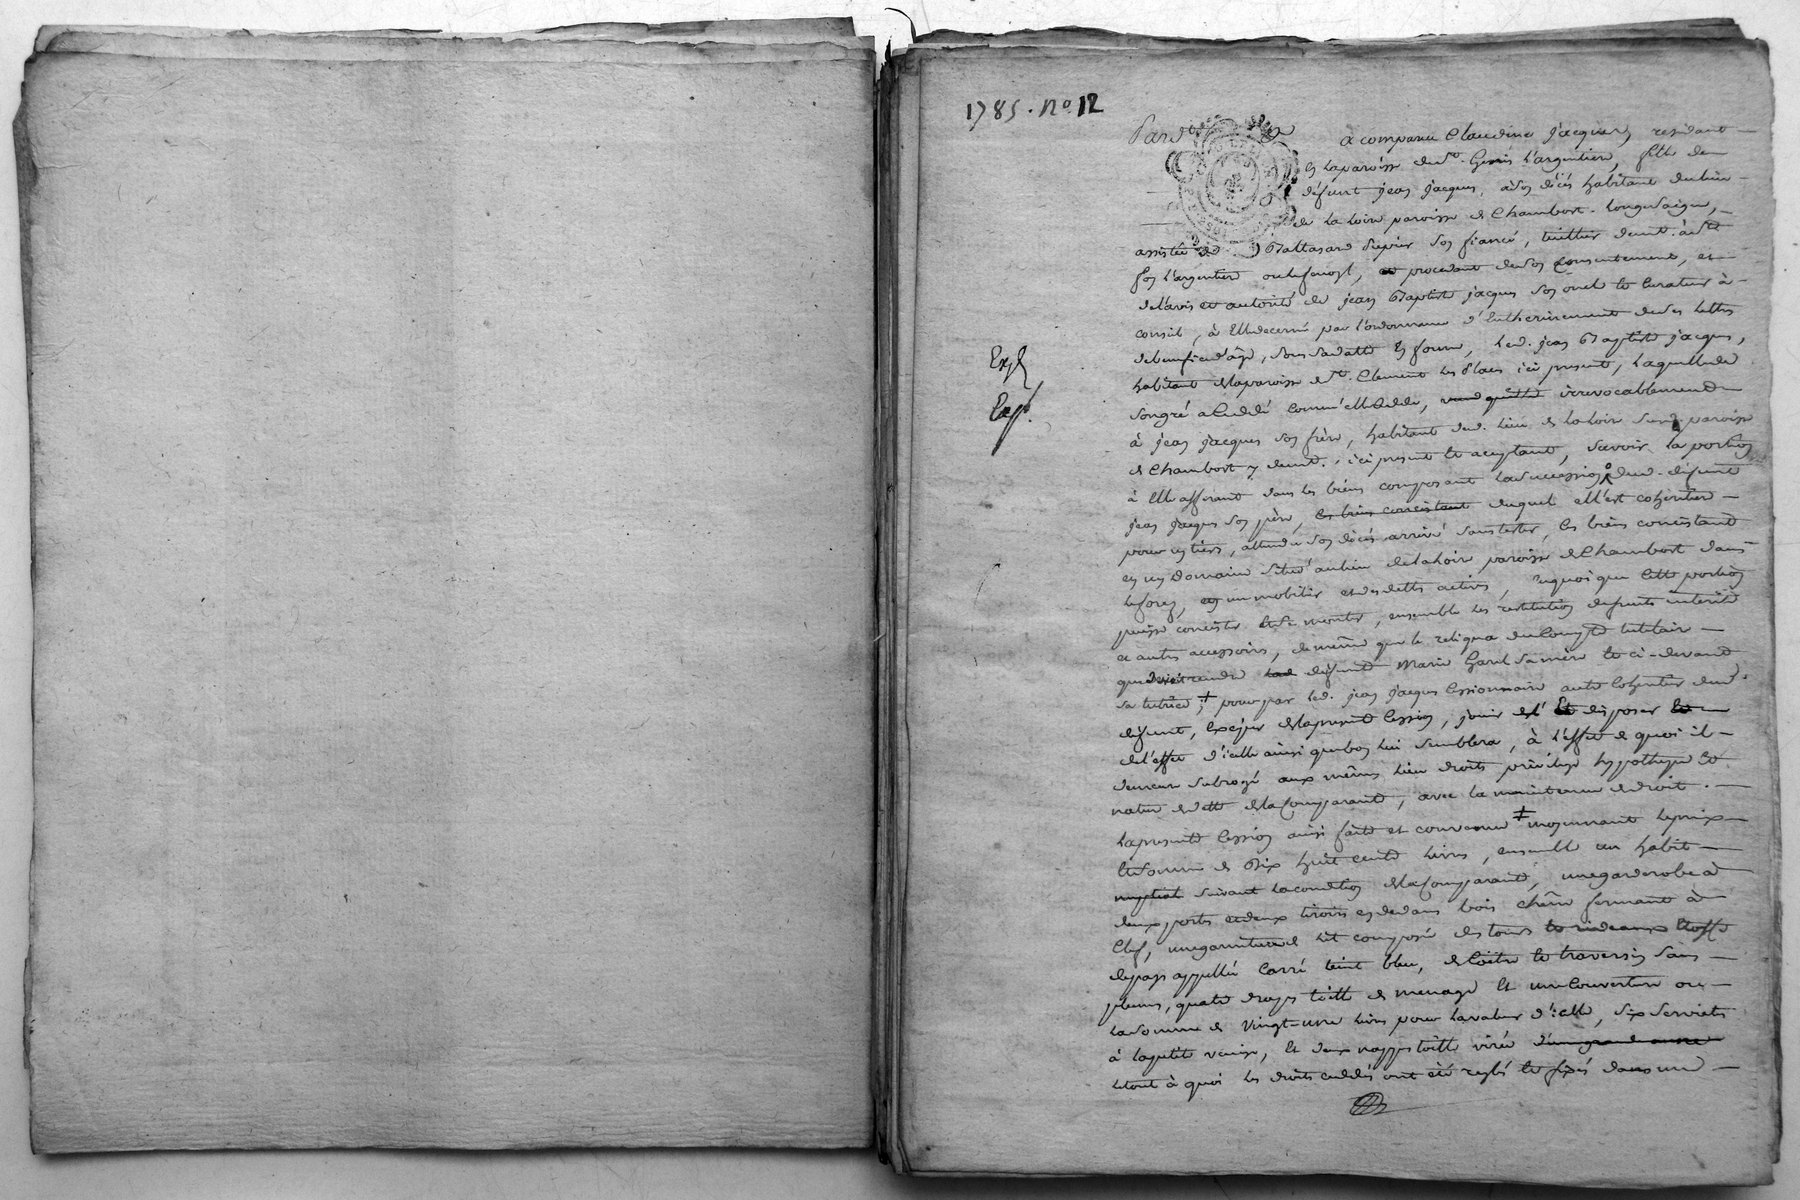 1785. No. 12
Pard.t a comparu Claudine jacques, residant
en la paroisse de St. Genis l'argentiere, fille de
défunt jean jacques, a son décés habitant du lieu
de la loire paroisse de Chambost. longesaigne,
assistée de Baltazard son fiancé, tuillier demt. à St.
foy l'argentiere, procedant de son consentement, et
de l'avis et autorité de jean Baptiste jacques son oncle et curateur à
conseil, à elle decerné par l'ordonnance d'entherinement de ses lettres
de benefice d'age, sous sa datte en forme, led. jean Baptiste jacques,
habitant de la paroisse de St. Clement les places ici present, laquelle de
son gré a cuddé comme elle cedde, irrevocablement
à jean jacques son frère, habitant dud. lieu de la loire susd. paroisse
de Chambost y demt. ici present et acceptant, savoir la portion
à elle afferant dans les biens composant la succession dud. défunt
jean jacques son père, les biens concistant duquel elle est cohéritiere
pour un tiers, attendu son décés arrivé sans tester, les biens concistant
en un Domaine situé au lieu de la loire paroisse de Chambost dans
le forez, en un mobilier et des dettes actives, enquoi que cette portion
puisse concister et se monter, ensemble les restitution de fruits interets
et autres accessoires, de même que le reliqua du compte tutelair
que devoit rendre lad. défunte Marie Garel sa mère et ci-devant
sa tutrice; pour par led. jean jacques cessionnaire autre cohéritier dud.
défunt, en la presente cession, jouir et disposer
de l'effet d'icelle ainsi que bon lui semblera, à l'effet de quoi il
demeure subrogé aux mêmes lieu droits privilege hypotheque et
nature de dette de la comparante, avec la maintenue de droit.
La presente cession ainsi faite et convenue moyennant le prix
et somme de Dix huit cents livres, ensemble un habit
nuptial suivant la condition de la comparante, une garderobe à
deux portes et deux tiroirs en dedans bois chêne fermant à
Clef, une garniture de lit composée des tours et rideaux étoffe
de pays appellée Carré teint bleu, de Coëtre et traversin sans
plumes, quatre draps toille de menage et une Couverture ou
la somme de vingt-une livres pour la valeur d'icelle, six serviettes
à la petite venise, et deux nappes toille
le tout à quoi les droits ceddés ont été reglés et fixés dans une
Exp.